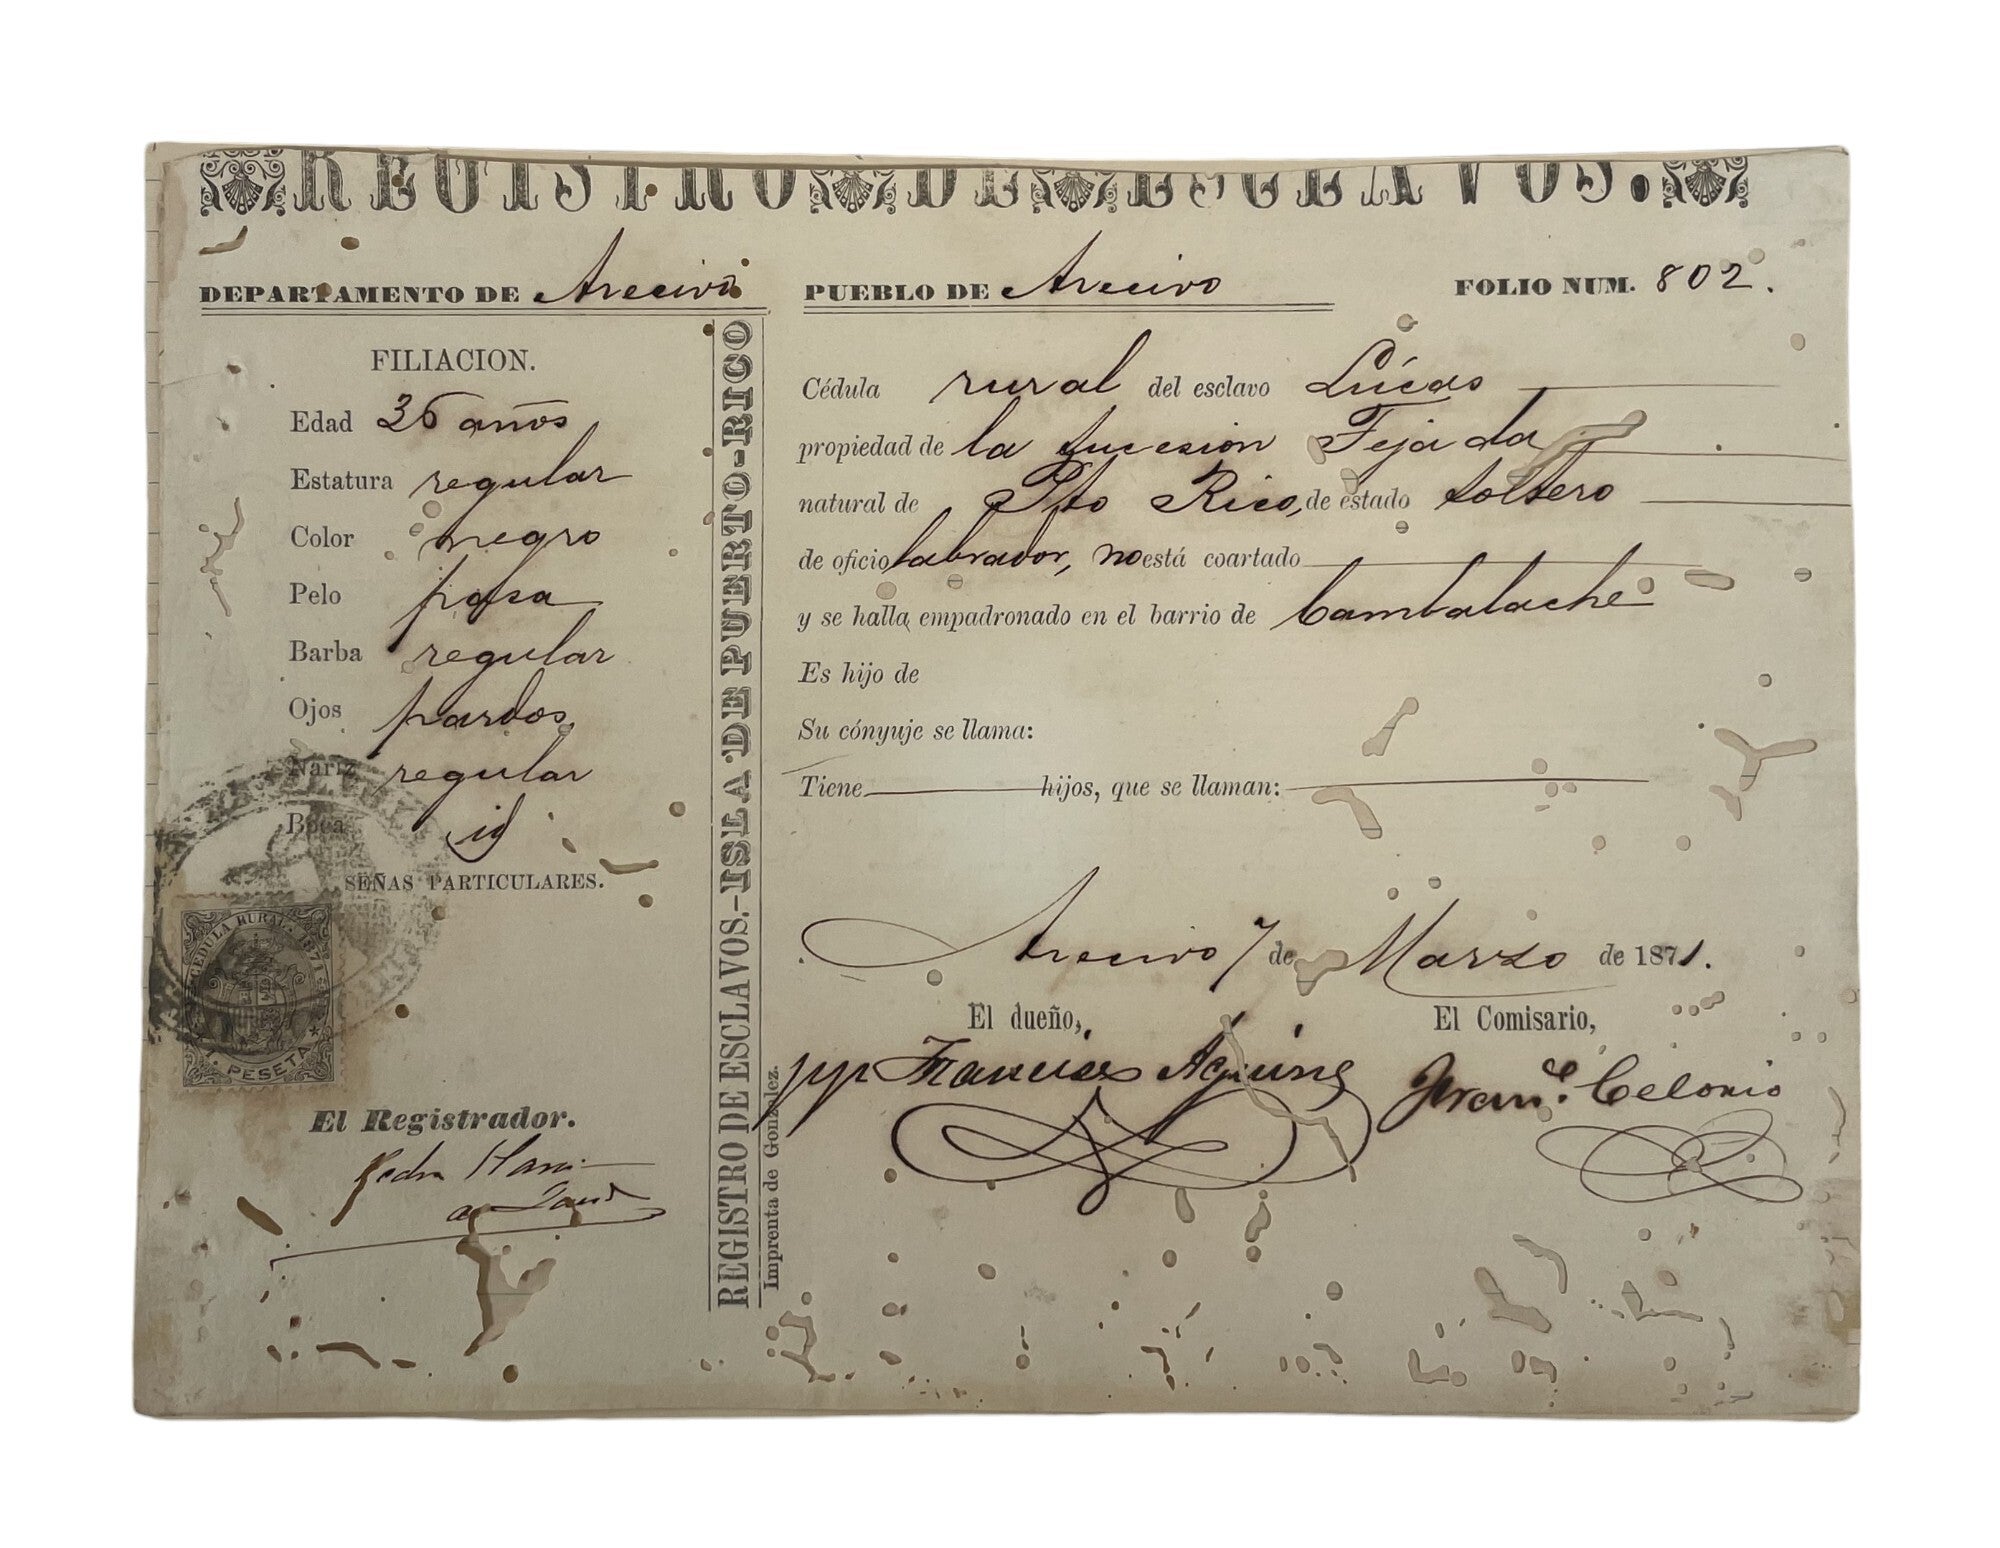 REGISTRO DE ESCLAVOS.
DEPARTAMENTO DE Arecivo
PUEBLO DE Arecivo
FOLIO NUM. 802.
FILIACION.
Edad 36 años
Estatura regular
Color negro
Pelo pasa
Barba regular
Ojos pardos
Nariz regular
Boca id
SEÑAS PARTICULARES.
CEDULA RURAL 1871
1 PESETA
El Registrador.
Pedro
REGISTRO DE ESCLAVOS.-ISLA DE PUERTO-RICO
Imprenta de Gonzalez.
Cédula rural del esclavo Lúcas
propiedad de la sucesion Tejada
natural de Pto Rico, de estado soltero
de oficio labrador, no está coartado
y se halla empadronado en el barrio de Cambalache
Es hijo de
Su cónyuje se llama:
Tiene hijos, que se llaman:
Arecivo 7 de Marzo de 1871.
El dueño,
El Comisario,
pp Francisco
Franco. Celonio